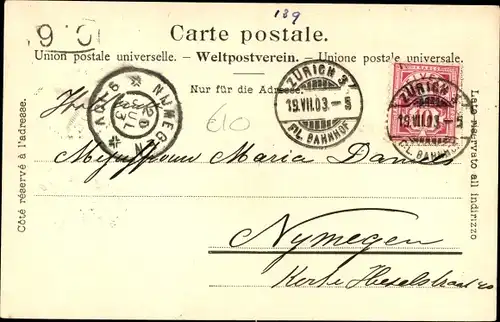 139
Carte postale.
Union postale universelle. - Weltpostverein. - Unione postale universale.
Nur für die Adresse.
Côté réservé à l'adresse.
Lato riservato all'indirizzo
ZÜRICH 3
19.VII.03 - 5
FIL. BAHNHOF
ZÜRICH 3
19.VII.03 - 5
FIL. BAHNHOF
NIJMEGEN
20 JUL 03
€10
Mejuffrouw Maria Daniels
Nymegen
Korte Hezelstraat 20